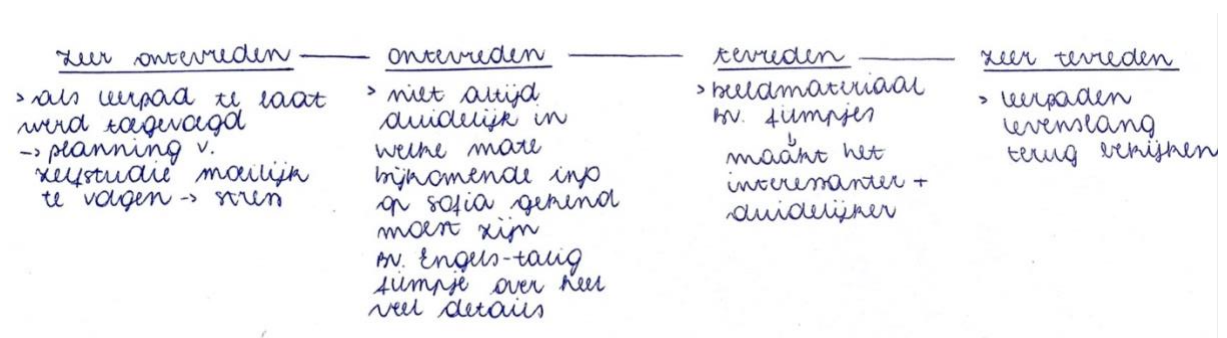 zeer ontevreden — ontevreden — tevreden — zeer tevreden
> als leerpad te laat
werd toegevoegd
-> planning v.
zelfstudie moeilijk
te volgen -> stress
> niet altijd
duidelijk in
welke mate
bijkomende info
op Sofia gekend
moest zijn
bv. Engels-talig
filmpje over heel
veel details
> beeldmateriaal
bv. filmpjes
↳
maakt het
interessanter +
duidelijker
> leerpaden
levenslang
terug bekijken